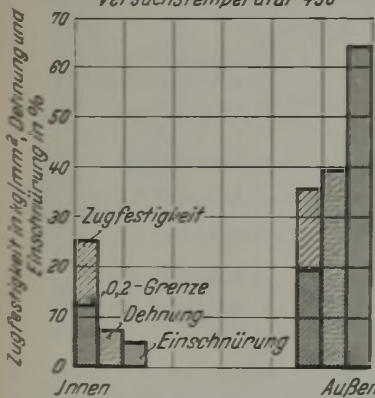 Versuchstemperatur 450°
Zugfestigkeit in kg/mm², Dehnung und
Einschnürung in %
70
60
50
40
30
20
10
0
Zugfestigkeit
0,2-Grenze
Dehnung
Einschnürung
Innen
Außen